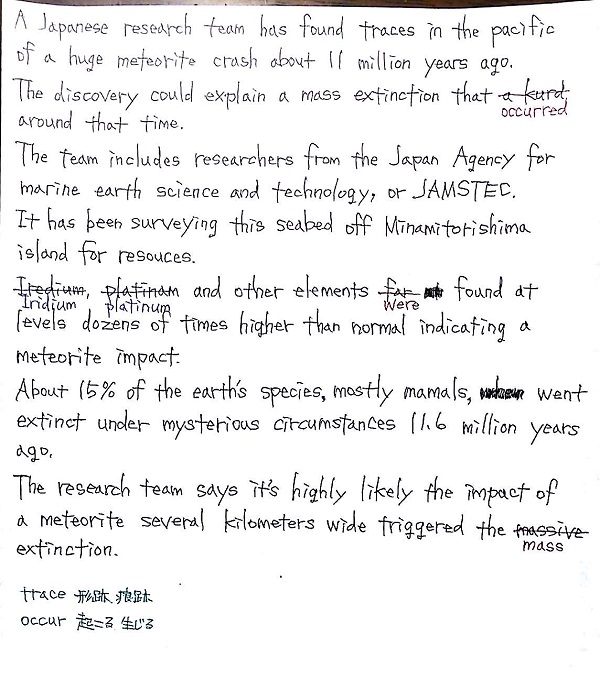 A Japanese research team has found traces in the pacific
of a huge meteorite crash about 11 million years ago.
The discovery could explain a mass extinction that a kurd
occurred
around that time.
The team includes researchers from the Japan Agency for
marine earth science and technology, or JAMSTEC.
It has been surveying this seabed off Minamitorishima
island for resouces.
Iredium, platinam and other elements far found at
Iridium platinum were
levels dozens of times higher than normal indicating a
meteorite impact.
About 15% of the earth's species, mostly mamals, went
extinct under mysterious circumstances 11.6 million years
ago.
The research team says it's highly likely the impact of
a meteorite several kilometers wide triggered the massive
mass
extinction.
trace 形跡 痕跡
occur 起こる 生じる